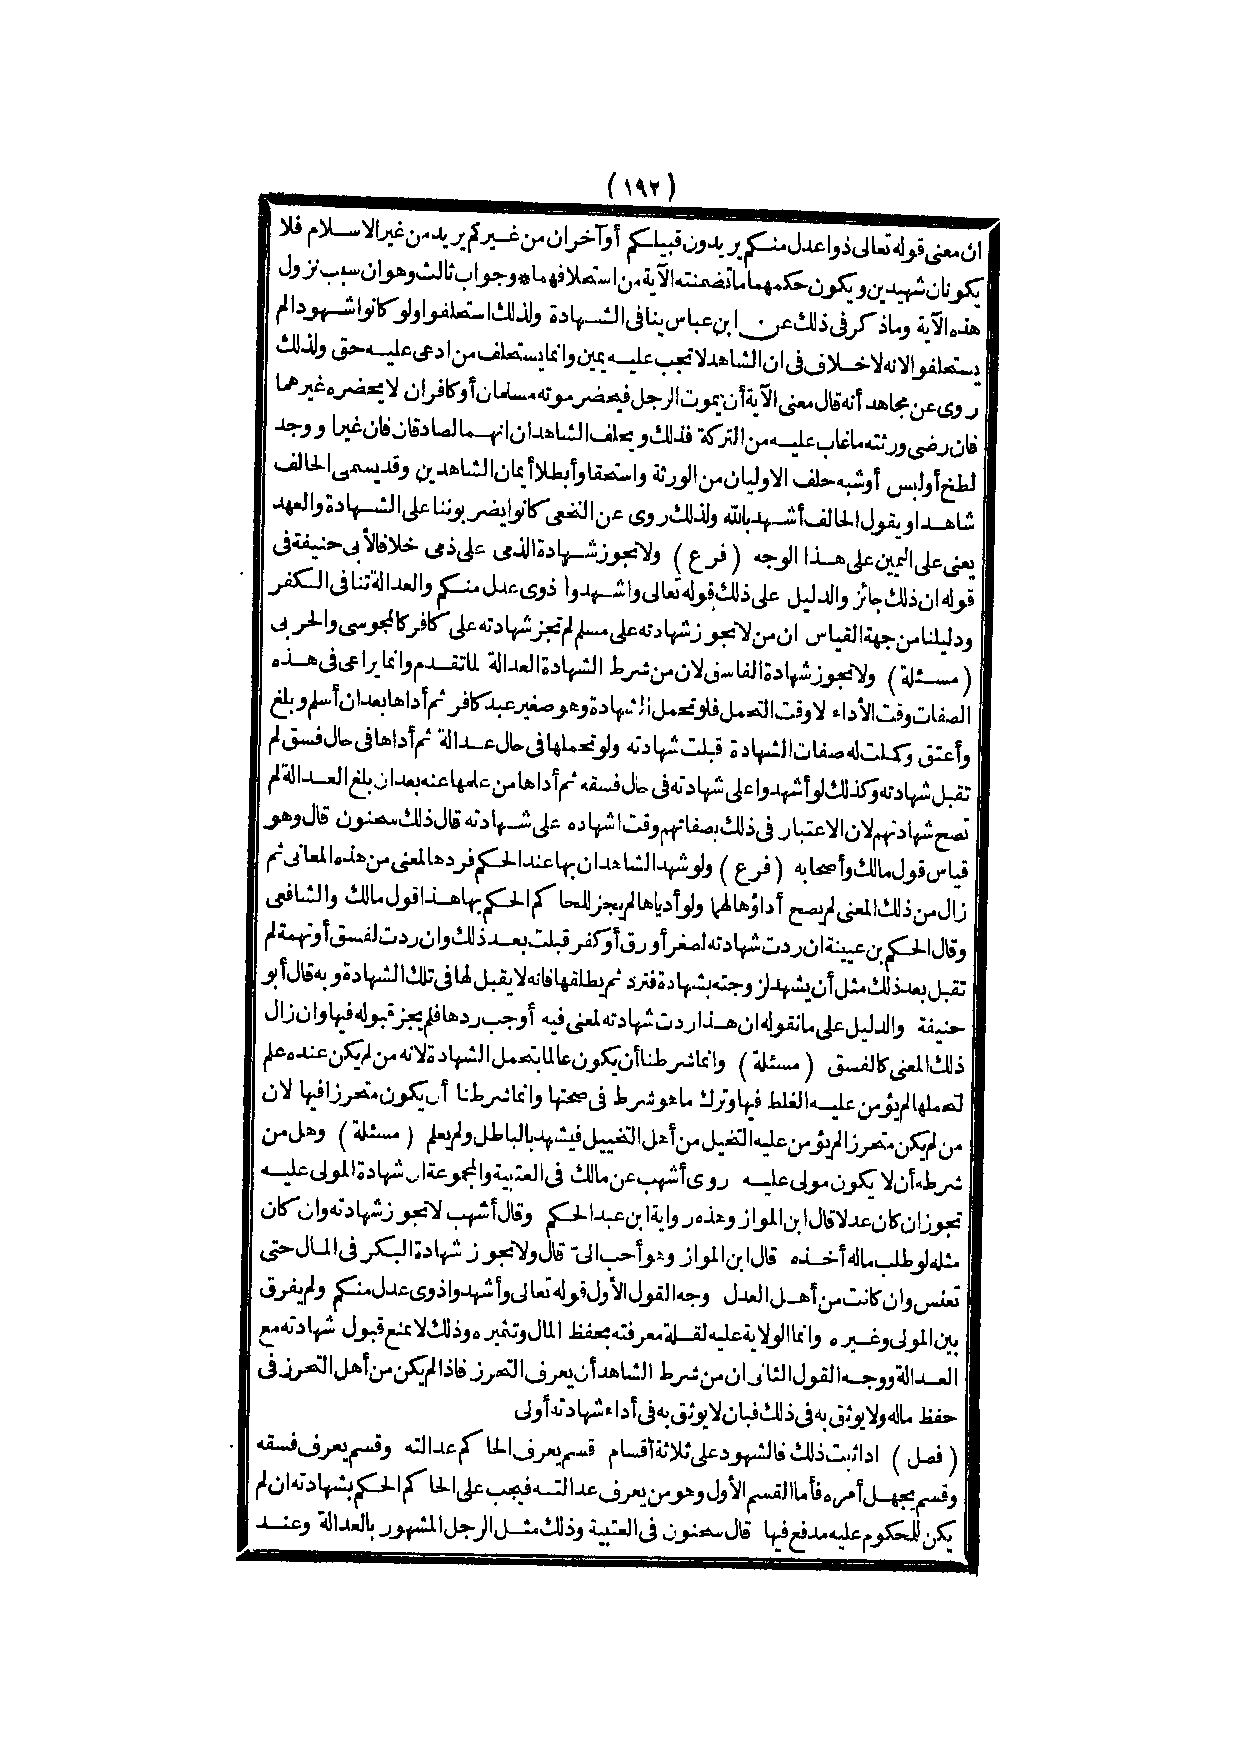 (١٩٢)
ان معنى قوله تعالى ذوا عدل منكم يريدون قبيلكم أو آخران من غيركم يريد من غير الاسلام فلا
يكونان شهيدين ويكون حكمهما ما تضمنته الآية من استحلافهما * وجواب ثالث وهو ان سبب نزول
هذه الآية وماذ كر فى ذلك عن ابن عباس ينافى الشهادة ولذلك استحلفوا ولو كانوا شهودا لم
يستحلفوا لانه لا خلاف فى ان الشاهد لا تجب عليه يمين وانما يستحلف من ادعى عليه حق ولذلك
روى عن مجاهد أنه قال معنى الآية أن يموت الرجل فيحضر موته مسلمان أو كافران لا يحضره غيرهما
فان رضى ورثته ما غاب عليه من التركة فذلك ويحلف الشاهدان انهما لصادقان فان غيرا ووجد
لطخ أو لبس أو شبه حلف الاوليان من الورثة واستحقا وأبطلا أيمان الشاهدين وقد يسمى الحالف
شاهدا ويقول الحالف أشهد بالله ولذلك روى عن النخعى كانوا يضربوننا على الشهادة والعهد
يعنى على اليمين على هذا الوجه (فرع) ولا تجوز شهادة الذمى على ذمى خلافا لأبى حنيفة فى
قوله ان ذلك جائز والدليل على ذلك قوله تعالى واشهدوا ذوى عدل منكم والعدالة تنافى الكفر
ودليلنا من جهة القياس ان من لا تجوز شهادته على مسلم لم تجز شهادته على كافر كالمجوسى والحربى
(مسئلة) ولا تجوز شهادة الفاسق لان من شرط الشهادة العدالة لما تقدم وانما يراعى فى هذه
الصفات وقت الأداء لا وقت التحمل فلو تحمل الشهادة وهو صغير عبد كافر ثم أداها بعد ان أسلم وبلغ
وأعتق وكملت له صفات الشهادة قبلت شهادته ولو تحملها فى حال عدالة ثم أداها فى حال فسق لم
تقبل شهادته وكذلك لو أشهدوا على شهادته فى حال فسقه ثم أداها من علمها عنه بعد ان بلغ العدالة لم
تصح شهادتهم لان الاعتبار فى ذلك بصفاتهم وقت اشهاده على شهادته قال ذلك سحنون قال وهو
قياس قول مالك وأصحابه (فرع) ولو شهد الشاهدان بها عند الحكم فردها لمعنى من هذه المعانى ثم
زال من ذلك المعنى لم يصح أداؤها لهما ولو أدياها لم يجز للحاكم الحكم بها هذا قول مالك والشافعى
وقال الحكم بن عيينة ان ردت شهادته لصغر أو رق أو كفر قبلت بعد ذلك وان ردت لفسق أو تهمة لم
تقبل بعد ذلك مثل أن يشهد لزوجته بشهادة فترد ثم يطلقها فانه لا يقبل لها فى تلك الشهادة وبه قال أبو
حنيفة والدليل على ما نقوله ان هذا ردت شهادته لمعنى فيه أوجب ردها فلم يجز قبوله فيها وان زال
ذلك المعنى كالفسق (مسئلة) وانما شرطنا أن يكون عالما بتحمل الشهادة لانه من لم يكن عنده علم
لتحملها لم يؤمن عليه الغلط فيها وترك ما هو شرط فى صحتها وانما شرطنا أن يكون متحرزا فيها لان
من لم يكن متحرزا لم يؤمن عليه التخيل من أهل التخييل فيشهد بالباطل ولم يعلم (مسئلة) وهل من
شرطه أن لا يكون مولى عليه روى أشهب عن مالك فى العتبية والمجموعة ان شهادة المولى عليه
تجوز ان كان عدلا قال ابن المواز وهذه رواية ابن عبد الحكم وقال أشهب لا تجوز شهادته وان كان
مثله لو طلب ماله أخذه قال ابن المواز وهو أحب الىّ قال ولا تجوز شهادة البكر فى المال حتى
تعنس وان كانت من أهل العدل وجه القول الأول قوله تعالى وأشهدوا ذوى عدل منكم ولم يفرق
بين المولى وغيره وانما الولاية عليه لقلة معرفته بحفظ المال وتثميره وذلك لا يمنع قبول شهادته مع
العدالة ووجه القول الثانى ان من شرط الشاهد أن يعرف التحرز فاذا لم يكن من أهل التحرز فى
حفظ ماله ولا يوثق به فى ذلك فبان لا يوثق به فى أداء شهادته أولى
(فصل) اذا ثبت ذلك فالشهود على ثلاثة أقسام قسم يعرف الحاكم عدالته وقسم يعرف فسقه
وقسم يجهل أمره فأما القسم الأول وهو من يعرف عدالته فيجب على الحاكم الحكم بشهادته ان لم
يكن للمحكوم عليه مدفع فيها قال سحنون فى العتبية وذلك مثل الرجل المشهور بالعدالة وعند